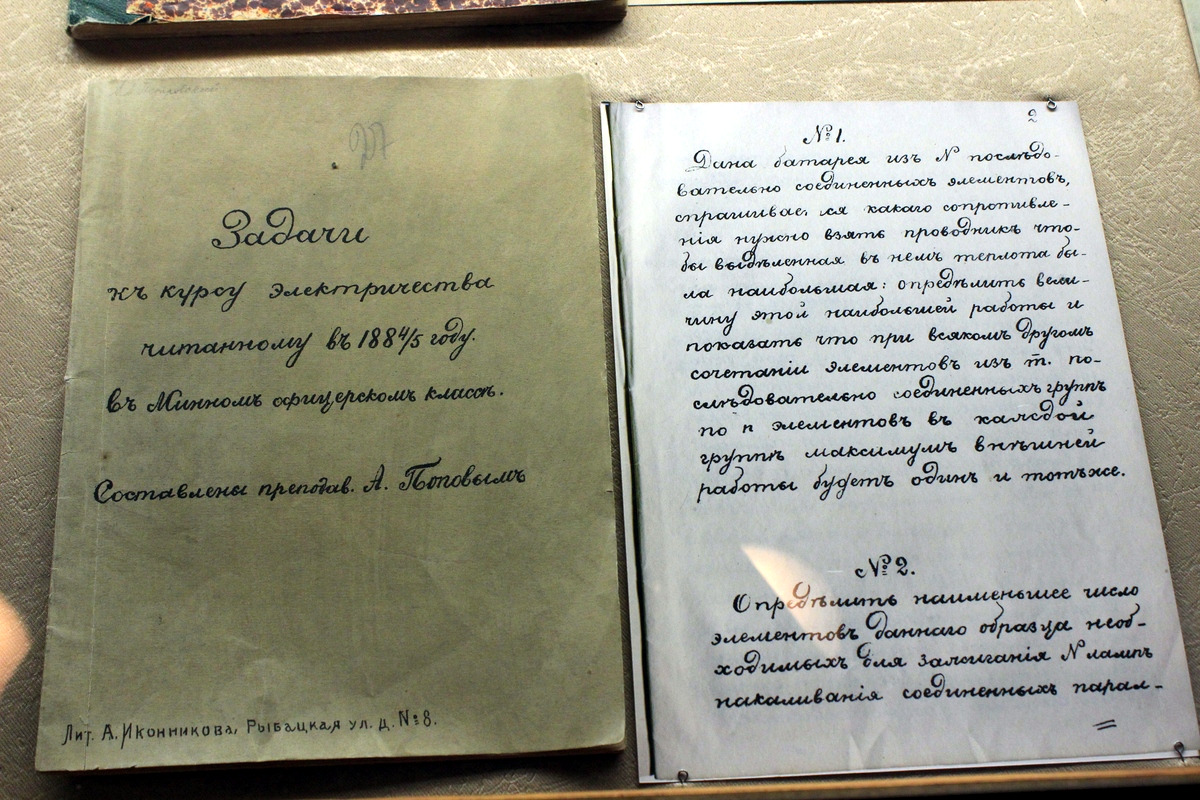 Задачи
къ курсу электричества
читанному въ 1884/5 году.
въ Минномъ офицерскомъ классѣ.
Составлены преподав. А. Поповымъ
Лит. А. Иконникова, Рыбацкая ул. д. №8.
2
№1.
Дана батарея изъ N послѣдо-
вательно соединенныхъ элементовъ,
спрашивается какаго сопротивле-
нія нужно взять проводникъ что-
бы выдѣленная въ немъ теплота бы-
ла наибольшая: опредѣлить вели-
чину этой наибольшей работы и
показать что при всякомъ другомъ
сочетаніи элементовъ изъ m. по-
слѣдовательно соединенныхъ группъ
по n элементовъ въ каждой
группѣ максимумъ внѣшней
работы будетъ одинъ и тотъже.
№2.
Опредѣлить наименьшее число
элементовъ даннаго образца необ-
ходимыхъ для зажиганія N лампъ
накаливанія соединенныхъ парал-